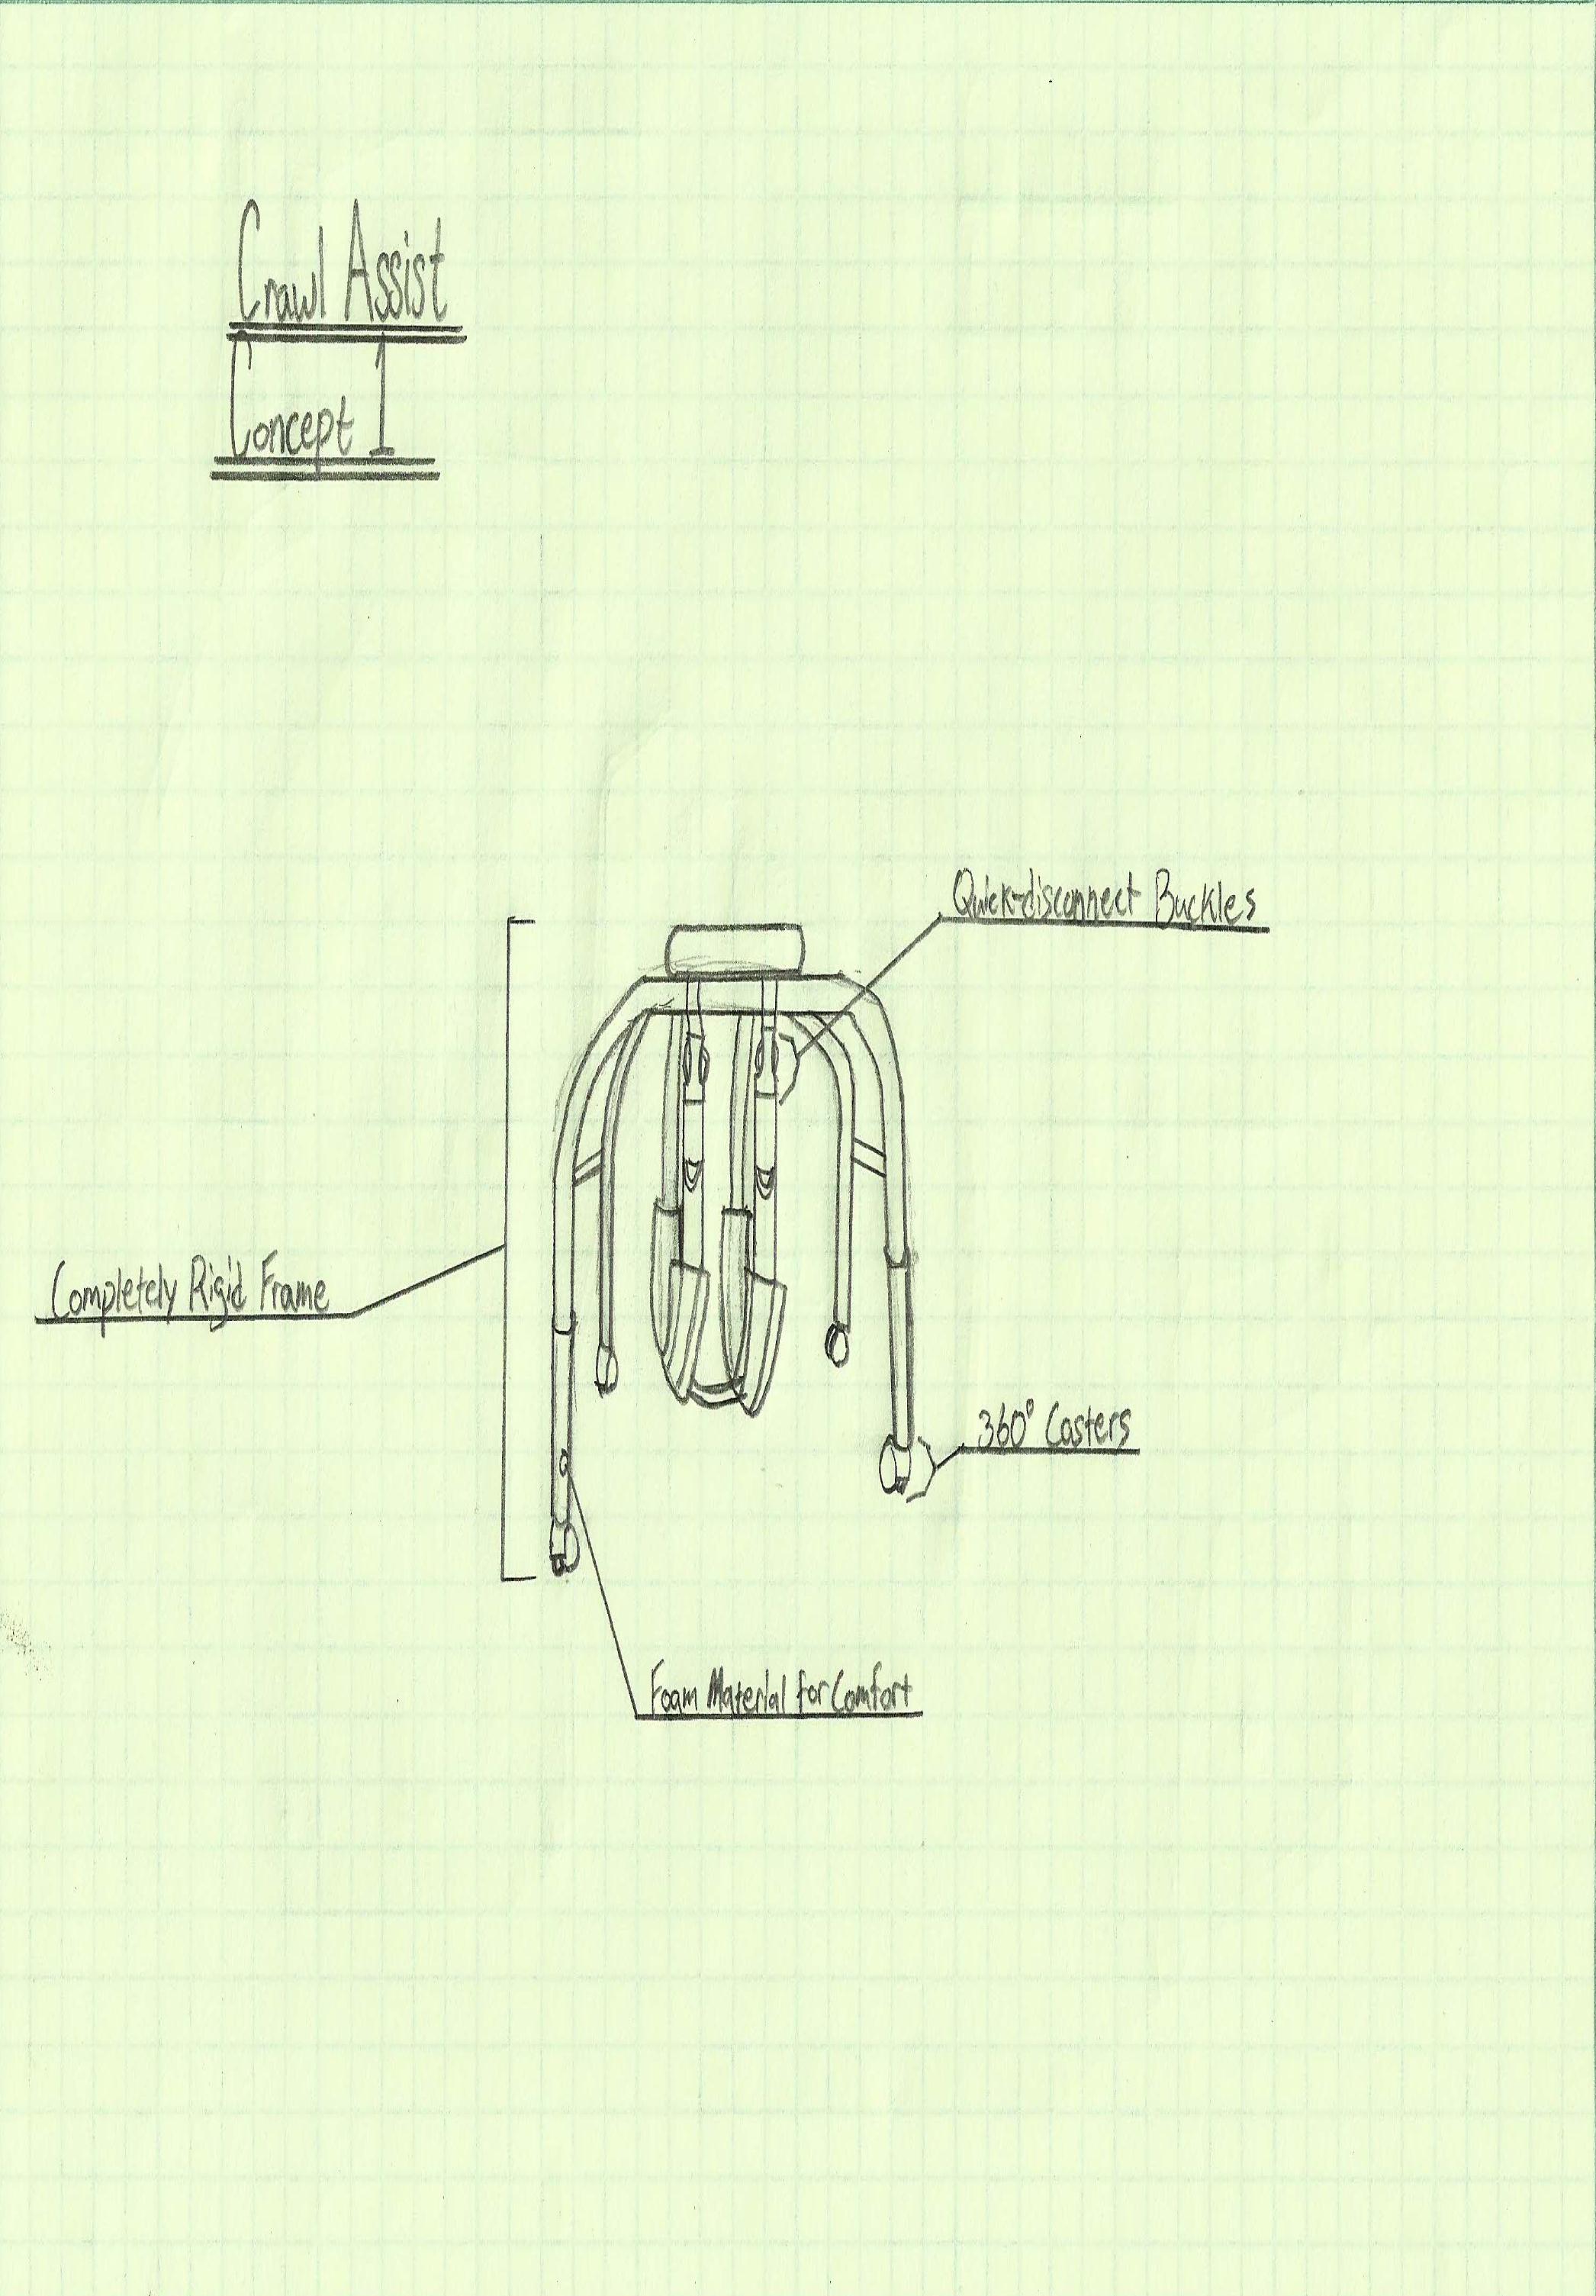 Crawl Assist
Concept 1
Quick-disconnect Buckles
Completely Rigid Frame
360° Casters
Foam Material for Comfort